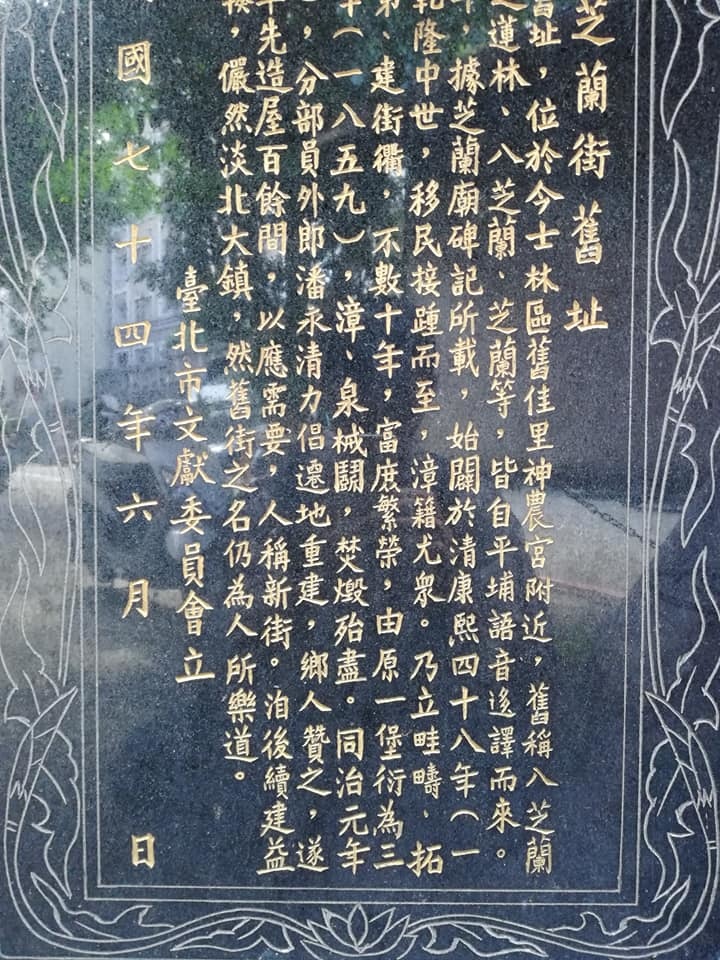 芝蘭街舊址
舊址，位於今士林區舊佳里神農宮附近，舊稱八芝蘭
之蓮林、八芝蘭、芝蘭等，皆自平埔語音迻譯而來。
年，據芝蘭廟碑記所載，始闢於清康熙四十八年（一
乾隆中世，移民接踵而至，漳籍尤衆。乃立畦疇、拓
第、建街衢，不數十年，富庶繁榮，由原一堡衍為三
年（一八五九），漳、泉械鬪，焚燬殆盡。同治元年
，分部員外郎潘永清力倡遷地重建，鄉人贊之，遂
年先造屋百餘間，以應需要，人稱新街。洎後續建益
儼然淡北大鎮，然舊街之名仍為人所樂道。
臺北市文獻委員會立
國七十四年六月 日